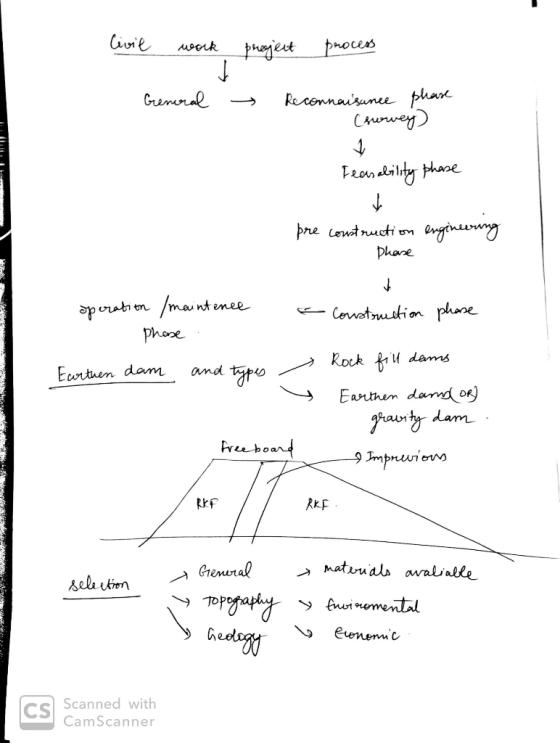 Civil work project process
General → Reconnaisance phase
(survey)
Feasability phase
pre construction engineering
phase
operation /maintenece ← Construction phase
phase
Earthen dam and types → Rock fill dams
→ Earthen dams (OR)
gravity dam
Free board
Imprevious
RKF RKF
selection → General → materials avaliable
→ Topography → Enviromental
→ Geology → Economic
CS Scanned with
CamScanner